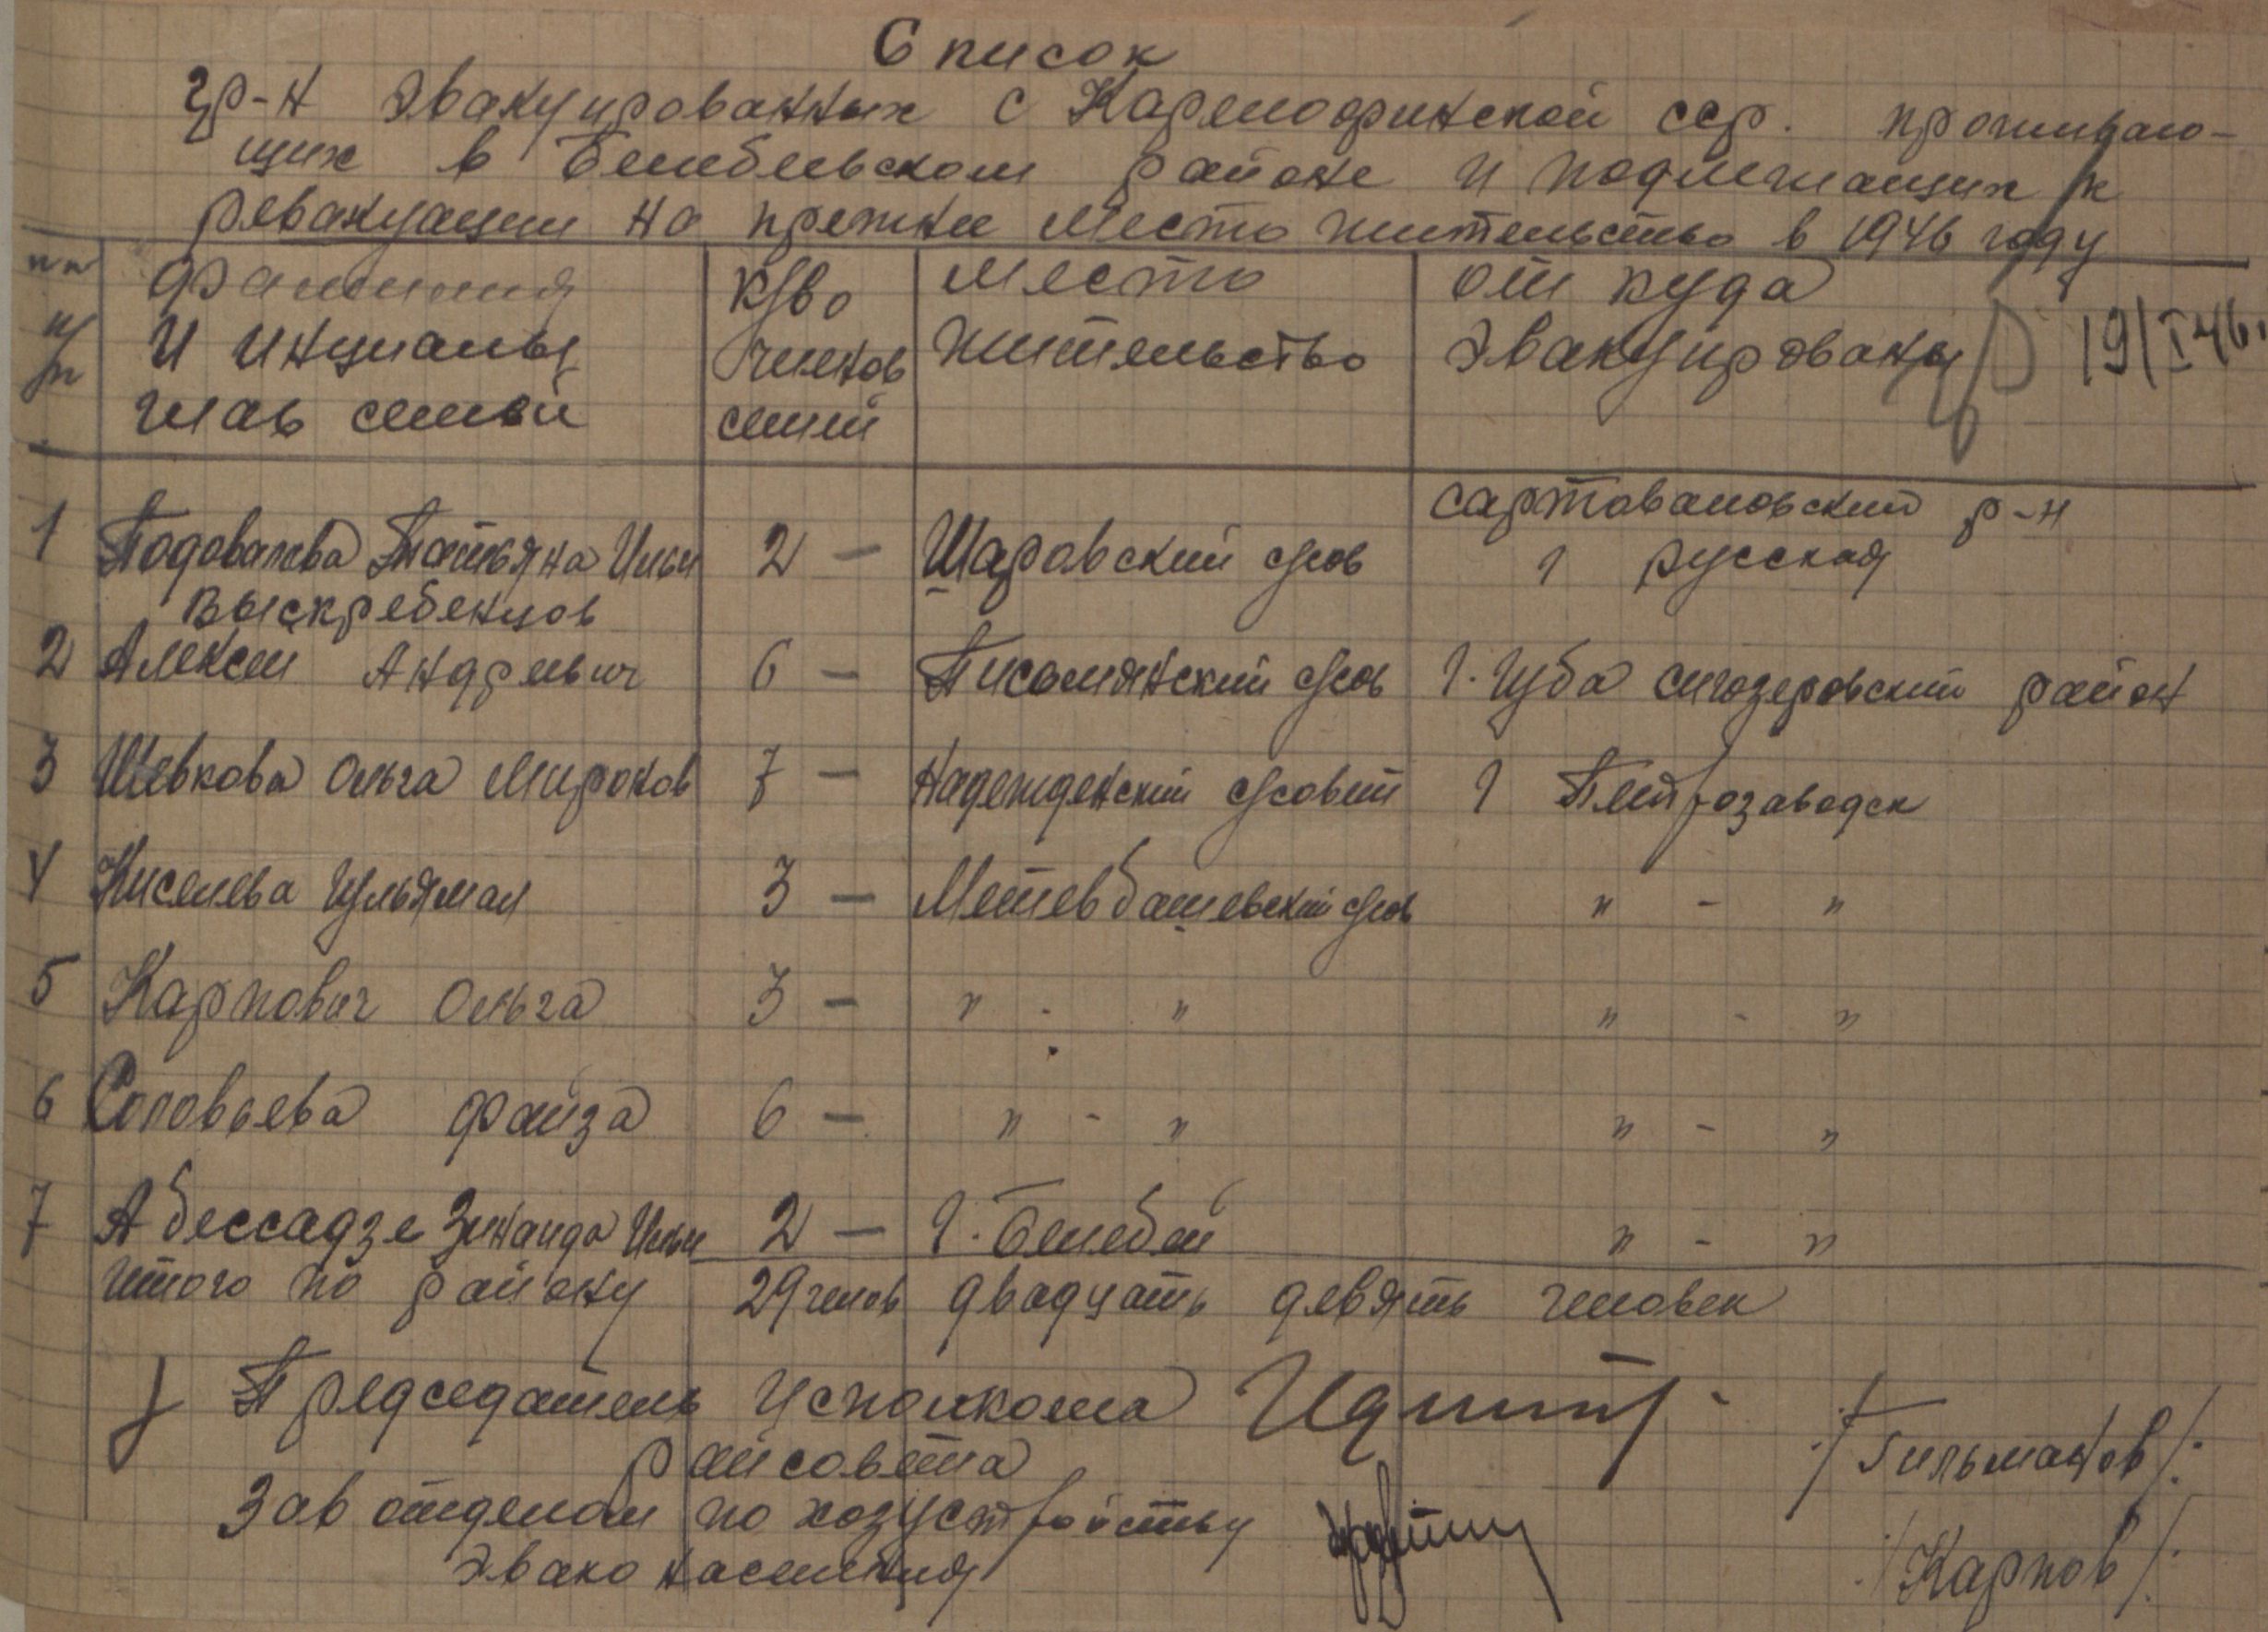 Список
гр-н эвакуированных с Карелофинской сср. проживаю-
щих в Белебеевском районе и подлежащих к
реэвакуации на прежнее место жительство в 1946 году
пп н/п Фамилия и инциалы глав семьи | к/во членов семей | Место жительство | от куда эвакуированы
19/I 46.
сартовановский р-н
1 Подовалова Татьяна Ильи 2 — Шаровский с/сов г русская
Выскребенцов
2 Алексей Андреевич 6 — Писомянский с/сов г. Губа сигозеровский район
3 Шевкова Ольга Миронов 7 — Надежденский с/совет г Петрозаводск
4 Киселева Гульямал 3 — Метевбашевский с/сов " - "
5 Карпович Ольга 3 — " - " " - "
6 Соловьева Файза 6 — " - " " - "
7 Абессадзе Зинаида Ильи 2 — г. Белебей " - "
Итого по району 29 челов двадцать девять человек
Председатель Исполкома
райсовета /Гильманов/
Зав отделом по хозустройству
эвако населения /Карпов/